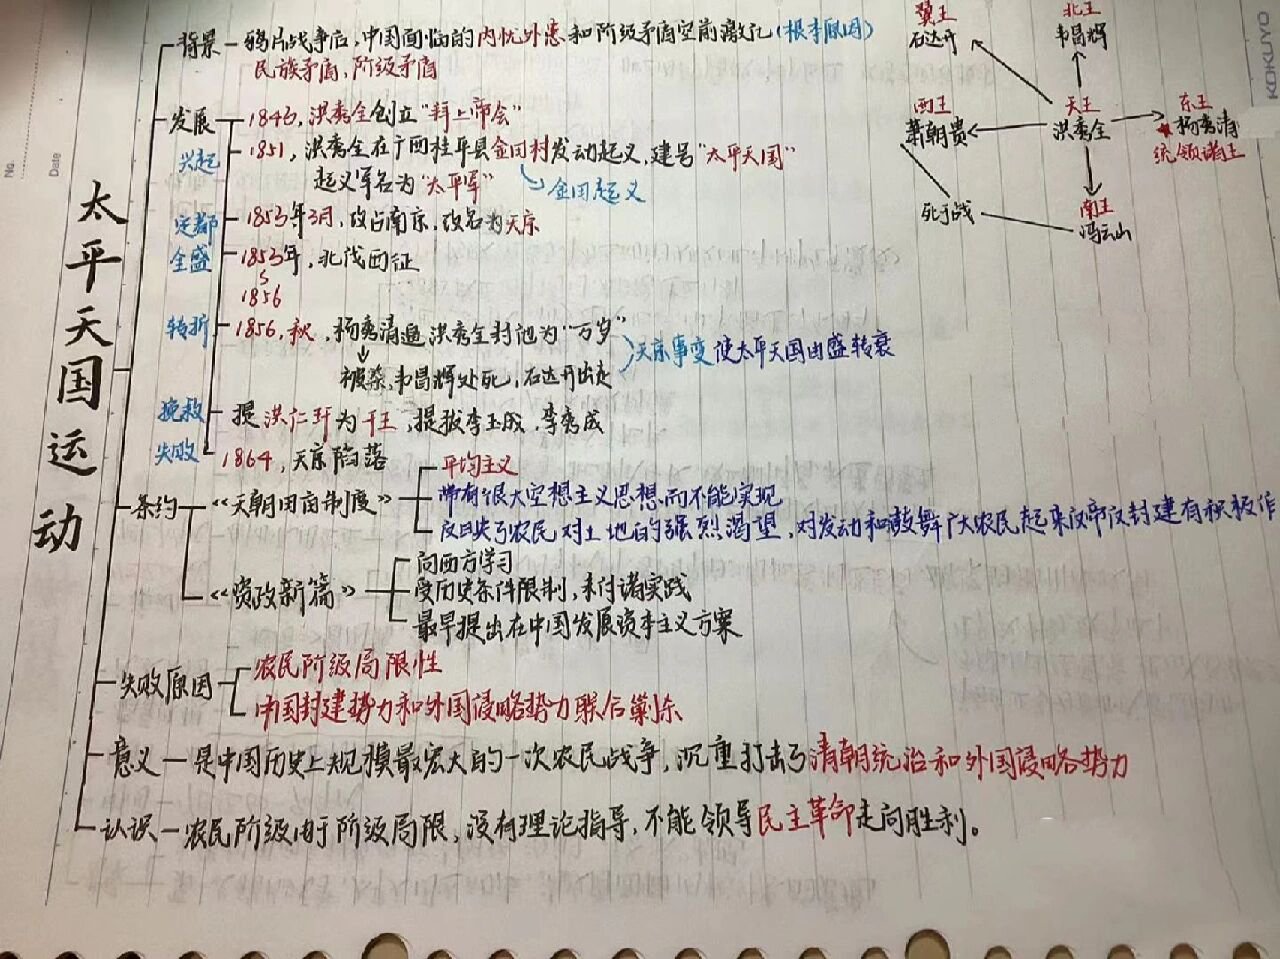 KOKUYO
No.
Date
太平天国运动
背景 — 鸦片战争后,中国面临的内忧外患和阶级矛盾空前激化(根本原因)
民族矛盾,阶级矛盾
发展
兴起
1843,洪秀全创立“拜上帝会”
1851,洪秀全在广西桂平县金田村发动起义,建号“太平天国”
起义军名为“太平军”
金田起义
定都
1853年3月,攻占南京,改名为天京
全盛
1853年,北伐西征
1856
转折
1856,秋,杨秀清逼洪秀全封他为“万岁”
被杀,韦昌辉处死,石达开出走
天京事变使太平天国由盛转衰
挽救
提洪仁玕为干王,提拔李玉成,李秀成
失败
1864,天京陷落
条约
《天朝田亩制度》
平均主义
带有很大空想主义思想而不能实现
反映了农民对土地的强烈渴望,对发动和鼓舞广大农民起来反帝反封建有积极作
《资政新篇》
向西方学习
受历史条件限制,未付诸实践
最早提出在中国发展资本主义方案
失败原因
农民阶级局限性
中国封建势力和外国侵略势力联合剿杀
意义 — 是中国历史上规模最宏大的一次农民战争,沉重打击了清朝统治和外国侵略势力
认识 — 农民阶级由于阶级局限,没有理论指导,不能领导民主革命走向胜利。
翼王
石达开
北王
韦昌辉
西王
萧朝贵
天王
洪秀全
东王
杨秀清
统领诸王
死于战
南王
冯云山